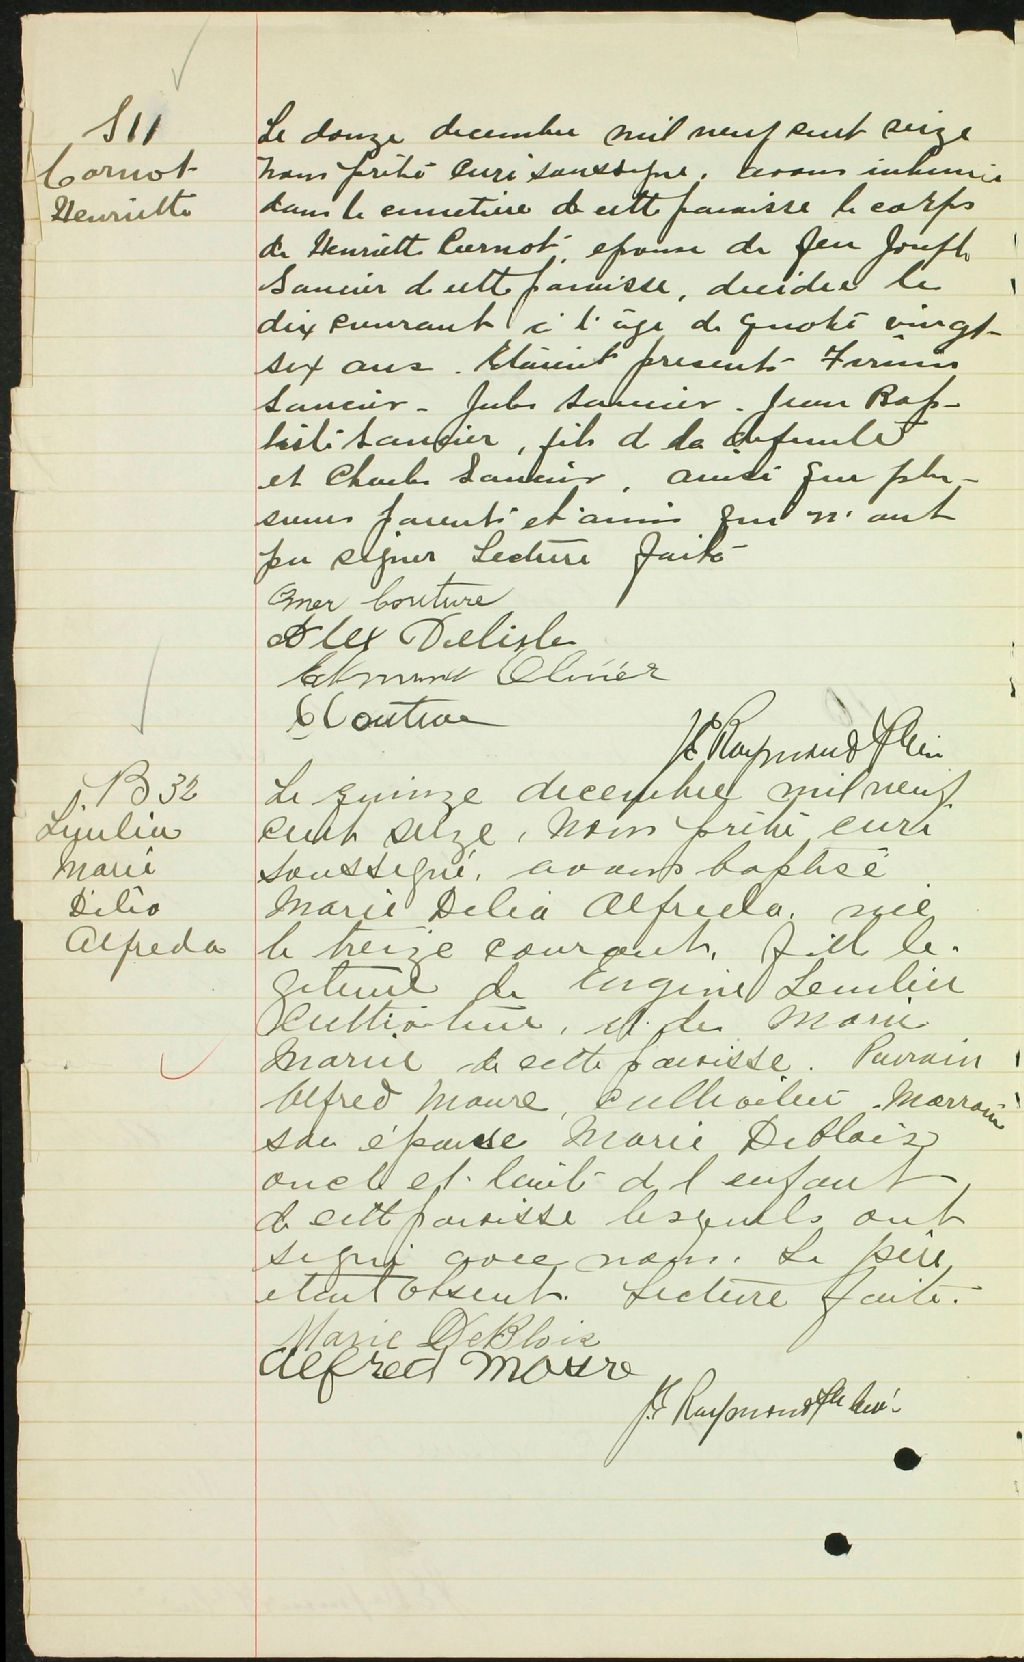 S 11
Cornot
Henriette
Le douze decembre mil neuf cent seize
nous prêtre curé soussigné, avons inhumé
dans le cimetière de cette paroisse le corps
de Henriette Cornot, epouse de feu Joseph
Saucier de cette paroisse, decidee le
dix courant à l'âge de quatre vingt
six ans. Etaient presents Firmin
Saucier - Jules Saucier. Jean Bap-
tiste Saucier, fils de la defunte
et Charles Saucier, ainsi que plu-
sieurs parents et amis qui n'ont
pu signer Lecture faite
Omer Couture
Alex Delisle
Edmond Olivier
C Couture
J E Raymond Ptre
B 32
Lemlin
Marie
Délia
Alfreda
Le quinze decembre mil neuf
cent seize, nous prêtre curé
soussigné, avons baptisé
Marie Delia Alfreda, née
le treize courant, fille le-
gitime de Eugène Lemlin
Cultivateur, et de Marie
Marie de cette paroisse. Parrain
Alfred Moure, cultivateur. Marraine
son épouse Marie DeBlois
oncle et tante de l enfant
de cette paroisse lesquels ont
signé avec nous. Le père
etant absent. Lecture faite.
Marie DeBlois
Alfred Mosre
J.E Raymond Ptre Curé